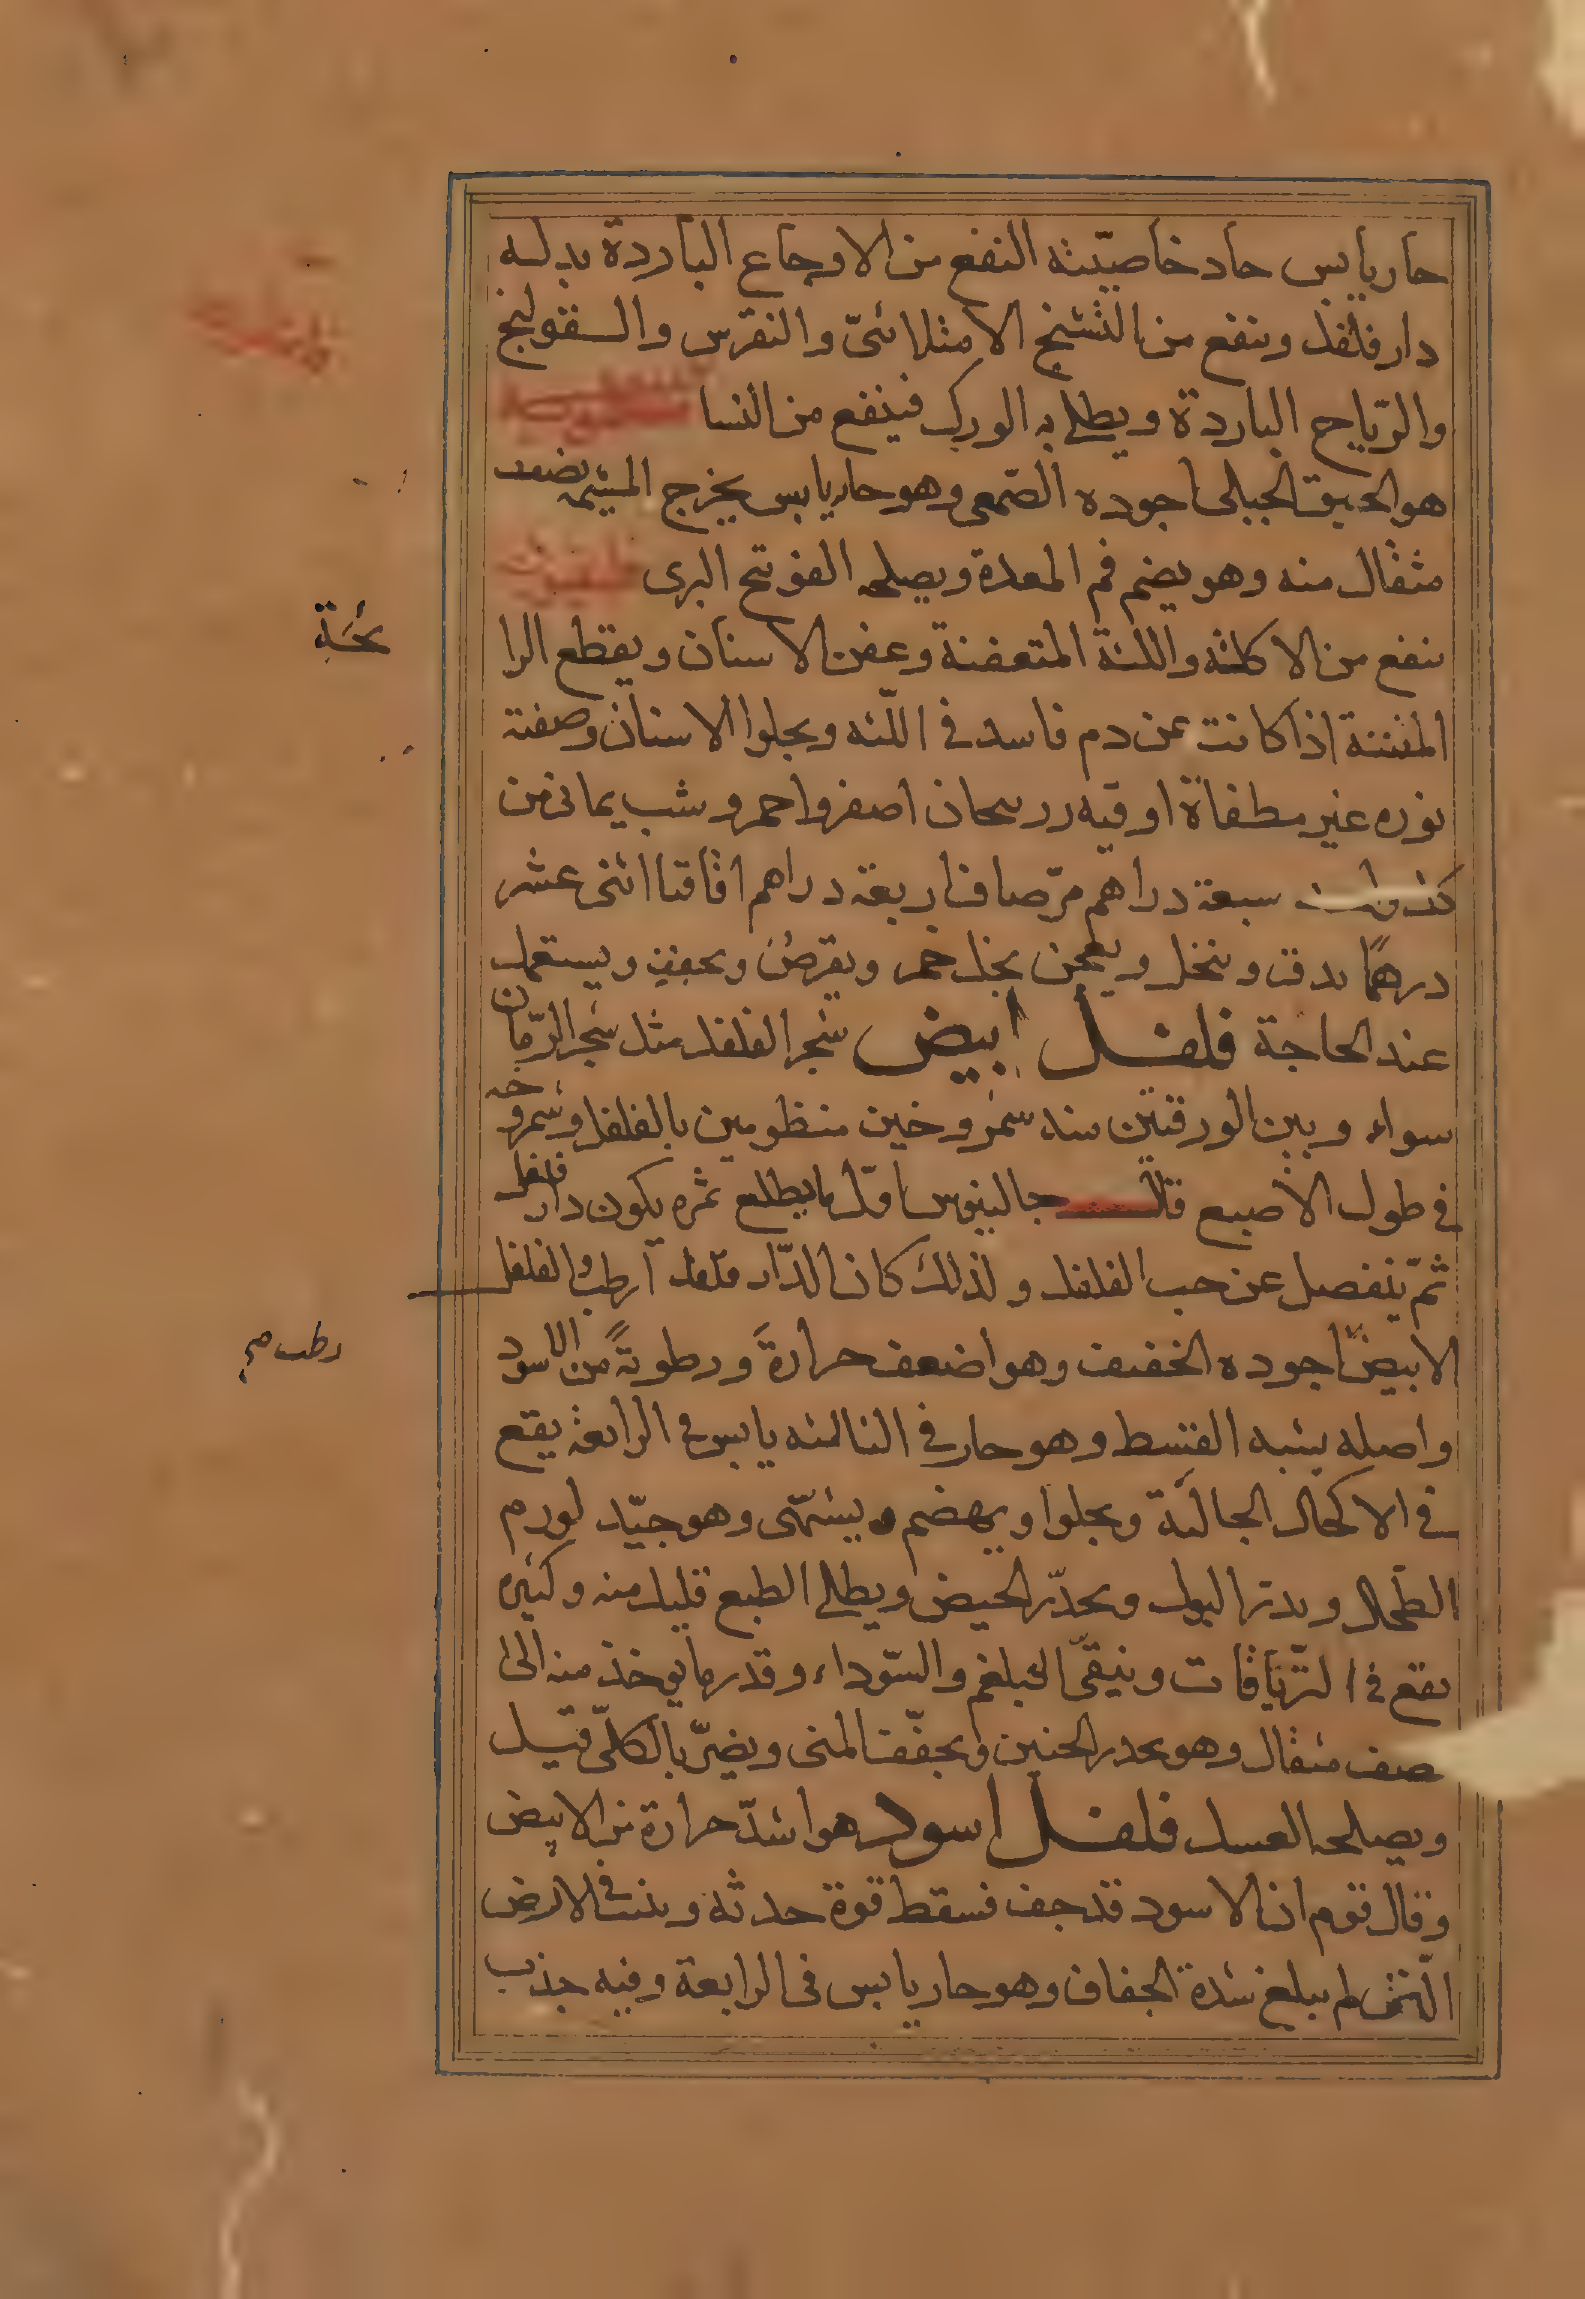 حار يابس حاد خاصيّته النفع من الاوجاع الباردة بدله
دار فلفل وينفع من التشنج الامتلائىّ والنقرس والسقولنج
والرّياح الباردة ويطلى به الورك فينفع من النسا
هو الحبق الجبلى اجوده الصّمعى وهو حار يابس يخرج المشيمه نصف
مثقال منه وهو يضم فم المعدة ويصلحه الفوتنج البرى
ينفع من الاكلة واللثة المتعفنة وعفن الاسنان ويقطع الرا
ئحة
المنتنة اذا كانت عن دم فاسد فى اللّثه ويجلوا الاسنان وصفته
نوره غير مطفاة اوقيه اصفر واحمر وشب يمانى من
سبعة دراهم مرّ صاف اربعة دراهم اقاقيا اثنى عشر
درهمًا يدق وينخل ويعجن بخل خمر ويقرص ويجفف ويستعمل
عند الحاجة فلفل ابيض شجر الفلفل مثل شجر الرّمان
سواء وبين الورقتين منه سمروخين منظومين بالفلفل وسمروخه
فى طول الاصبع قال جالينوس اوّل ما يطلع ثمره يكون دار فلفل
ثمّ ينفصل عن حب الفلفل ولذلك كان الدّار فلفل ارطب والفلفل
رطب صح
الابيض اجوده الخفيف وهو اضعف حرارةً ورطوبةً من الاسود
واصله يشبه القسط وهو حار فى الثالثه يابس فى الرابعة يقع
فى الاكحال الجالية ويجلوا ويهضم ويشهّى وهو جيّد لورم
الطّحال ويدرّ البول ويحدّر الحيض ويطلى الطبع قليل منه وكثيره
يقع فى التّرياقات وينقىّ البلغم والسّوداء وقدر ما يوخذ منه الى
صف مثقال وهو يحدر الجنين ويجفّف المنى ويضرّ بالكلىّ قيل
ويصلحه العسل فلفل اسود هو اشدّ حرارة من الابيض
وقال قوم ان الاسود قد جف فسقط قوة حدته وينبت فى الارض
الّتى لم يبلغ شدة الجفاف وهو حار يابس فى الرابعة وفيه جذب